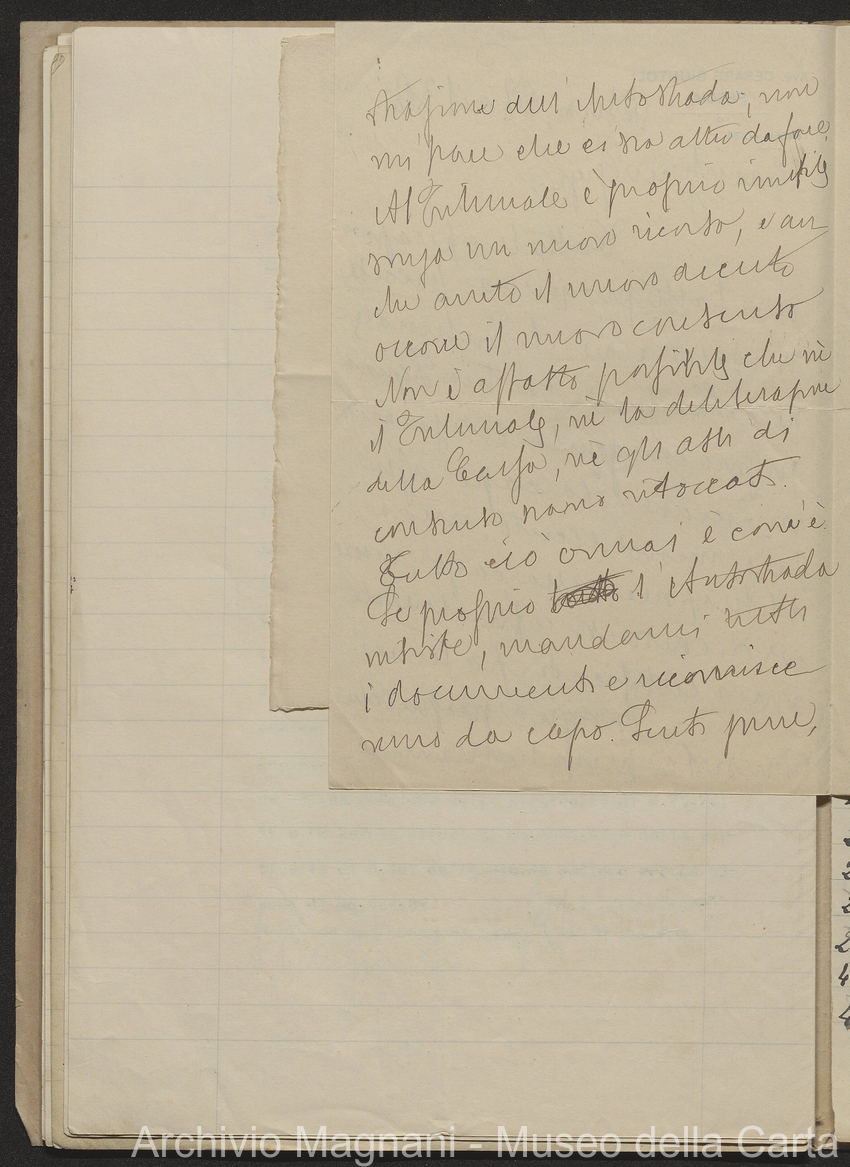 strazione dell'Autostrada, non
mi pare che ci sia altro da fare.
Al Tribunale è proprio inutile
senza un nuovo ricorso, e an
che avuto il nuovo decreto
occorre il nuovo contratto
Non è affatto possibile che nè
il Tribunale, nè la deliberazione
della Cassa, nè gli atti di
contratto siano ritoccati.
Tutto ciò ormai è com'è.
Se proprio l'Autostrada
insiste, mandami tutti
i documenti e ricomince
remo da capo. Senti pure,
Archivio Magnani - Museo della Carta